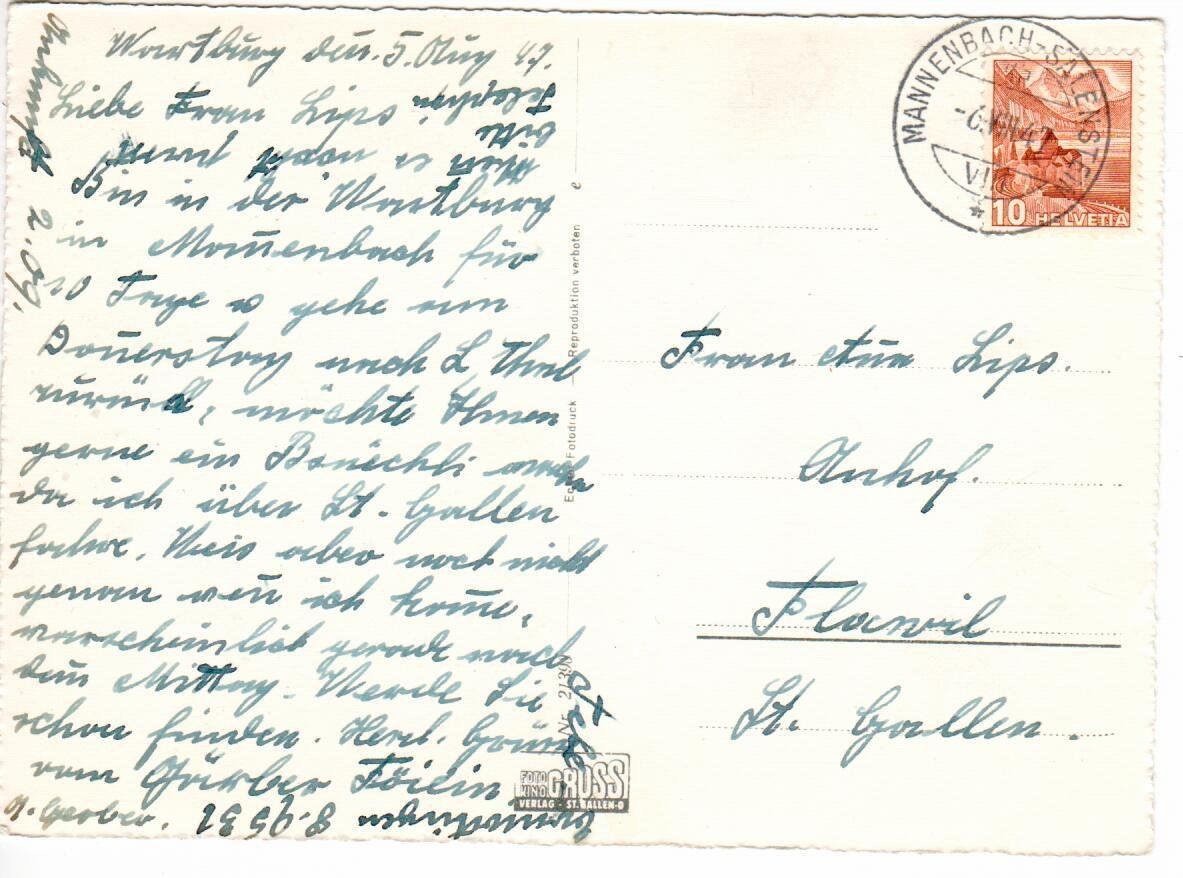 Wartburg den. 5. Aug 47.
Liebe Frau Lips
Bin in der Wartburg
in Mañenbach für
10 Tage u gehe am
Donerstag nach L
zurück, möchte Ihnen
gerne ein Bsüechli mache
da ich über St. Gallen
fahre. Weis aber noch nicht
genau wen ich kome,
warscheinlich gerade nach
dem Mittag. Werde Sie
schon finden. Herzl. Grüsse
vom Gärber
G. Gerber.
Ankunft 2.09.
Telephon
bitte
8.95 31
Ermatingen
Echte Fotodruck Reproduktion verboten
Nr. 2139
FOTO KINO GROSS
VERLAG · ST. GALLEN-O
MANNENBACH-SALENSTEIN
VIII
10 HELVETIA
Frau Lips.
Anhof.
Flawil
St. Gallen.